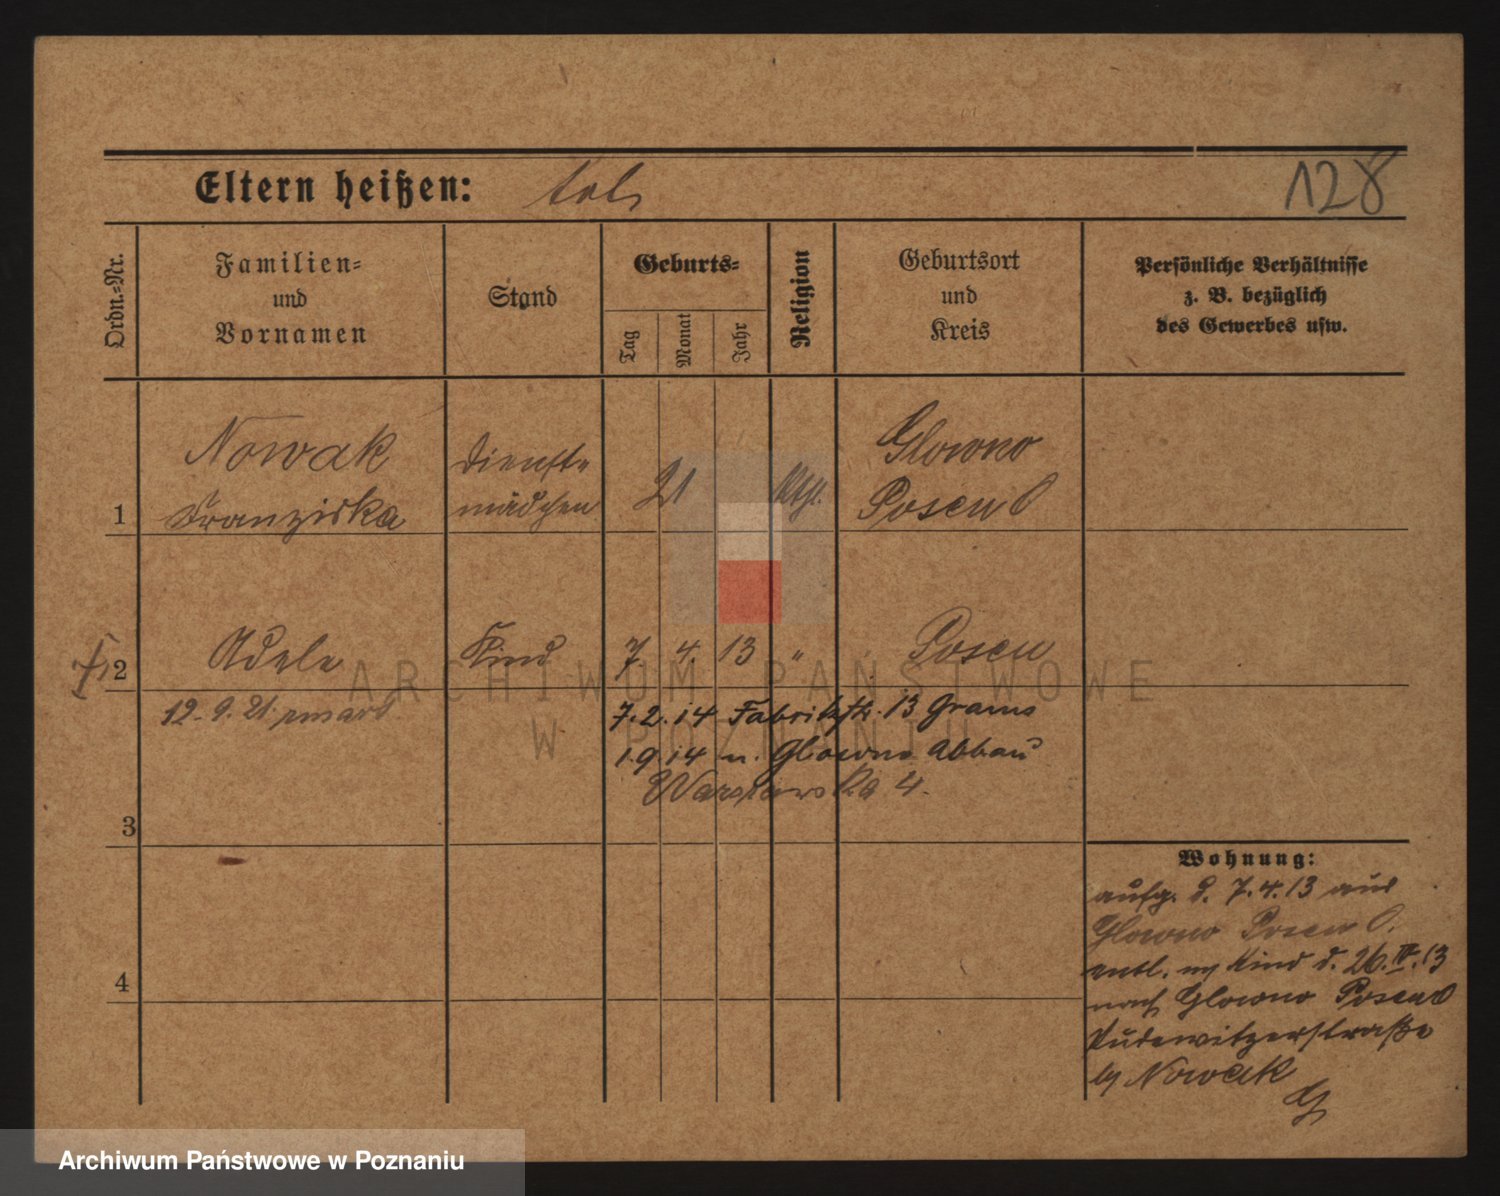 Eltern heißen:
128
Ordn.-Nr.
Familien-
und
Vornamen
Stand
Geburts-
Tag
Monat
Jahr
Religion
Geburtsort
und
Kreis
Persönliche Verhältnisse
z. B. bezüglich
des Gewerbes usw.
1
Nowak
Franziska
Dienst-
mädchen
21
Kthl.
Glowno
Posen O
2
Adele
Kind
7. 4. 13 "
Posen
12. 9. 21
7. 2. 14 Fabrikstr. 13
1. 9. 14 n. Glowno Abbau
Warszawska 4.
3
4
Wohnung:
aufg. d. 7. 4. 13 aus
Glowno Posen O.
entl. m Kind d. 26. IV. 13
nach Glowno Posen O
Pudewitzerstraße
by Nowak
ARCHIWUM PAŃSTWOWE
W POZNANIU
Archiwum Państwowe w Poznaniu